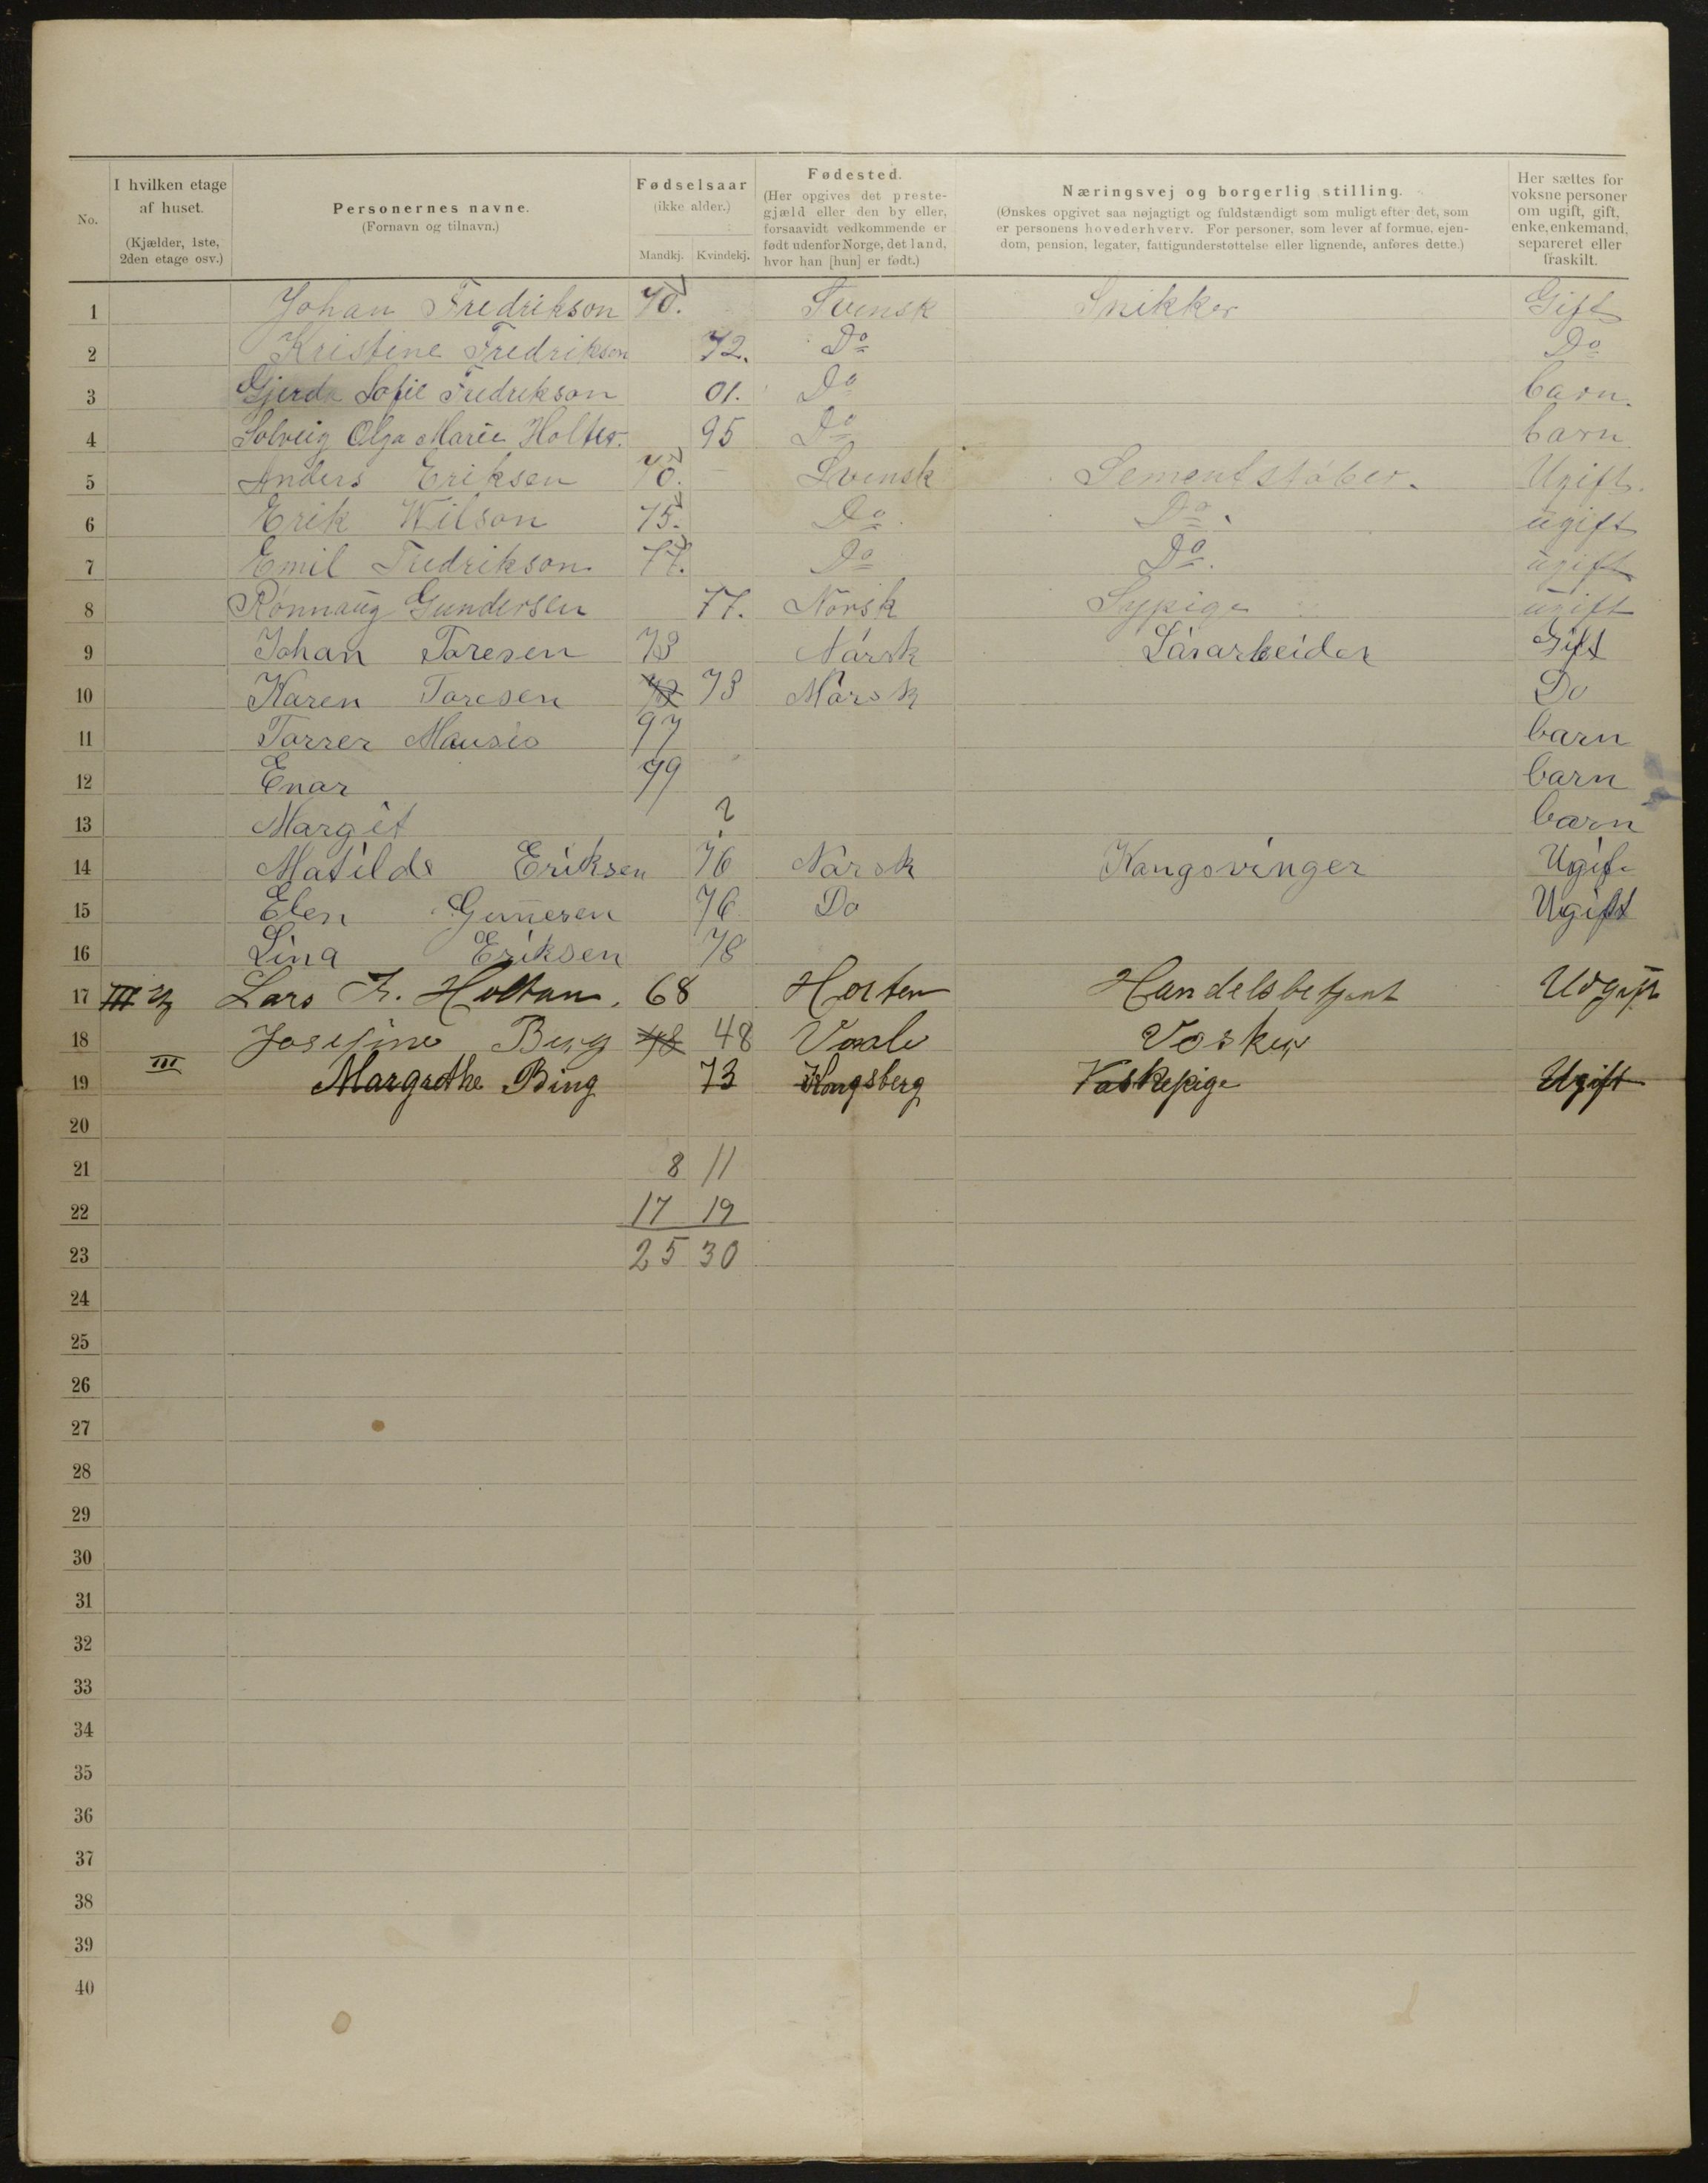 No.
I hvilken etage af huset. (Kjælder, 1ste, 2den etage osv.)
Personernes navne. (Fornavn og tilnavn.)
Fødselsaar (ikke alder.) Mandkj. Kvindekj.
Fødested. (Her opgives det prestegjæld eller den by eller, forsaavidt vedkommende er født udenfor Norge, det land, hvor han [hun] er født.)
Næringsvej og borgerlig stilling. (Ønskes opgivet saa nøjagtigt og fuldstændigt som muligt efter det, som er personens hovederhverv. For personer, som lever af formue, ejendom, pension, legater, fattigunderstøttelse eller lignende, anføres dette.)
Her sættes for voksne personer om ugift, gift, enke, enkemand, separeret eller fraskilt.
1 Johan Fredrikson 70. Svensk Snikker Gift
2 Kristine Fredrikson 72. Do Do
3 Gjerda Sofie Fredrikson 01. Do barn.
4 Solveig Olga Marie Holter. 95 Do barn
5 Anders Eriksen 70. Svensk Sementstøber. Ugift.
6 Erik Nilson 75. Do Do. ugift
7 Emil Fredrikson 77. Do Do. ugift
8 Rønnaug Gundersen 77. Norsk Sypige ugift
9 Johan Toresen 73 Norsk Løsarbeider Gift
10 Karen Toresen 73 Norsk Do
11 Torrer 97 barn
12 Enar 99 barn
13 Margit ? barn
14 Matilde Eriksen 76 Norsk Kongsvinger Ugift
15 Elen 76 Do Ugift
16 Lina Eriksen 78
17 III Lars Fr. Holtan. 68 Horten Handelsbetjent Ugift
18 Josefine Berg 48 Vaale Vasker
19 III Margrethe Bing 73 Kongsberg Vaskepige Ugift
20
21 8 11
22 17 19
23 25 30
24
25
26
27
28
29
30
31
32
33
34
35
36
37
38
39
40